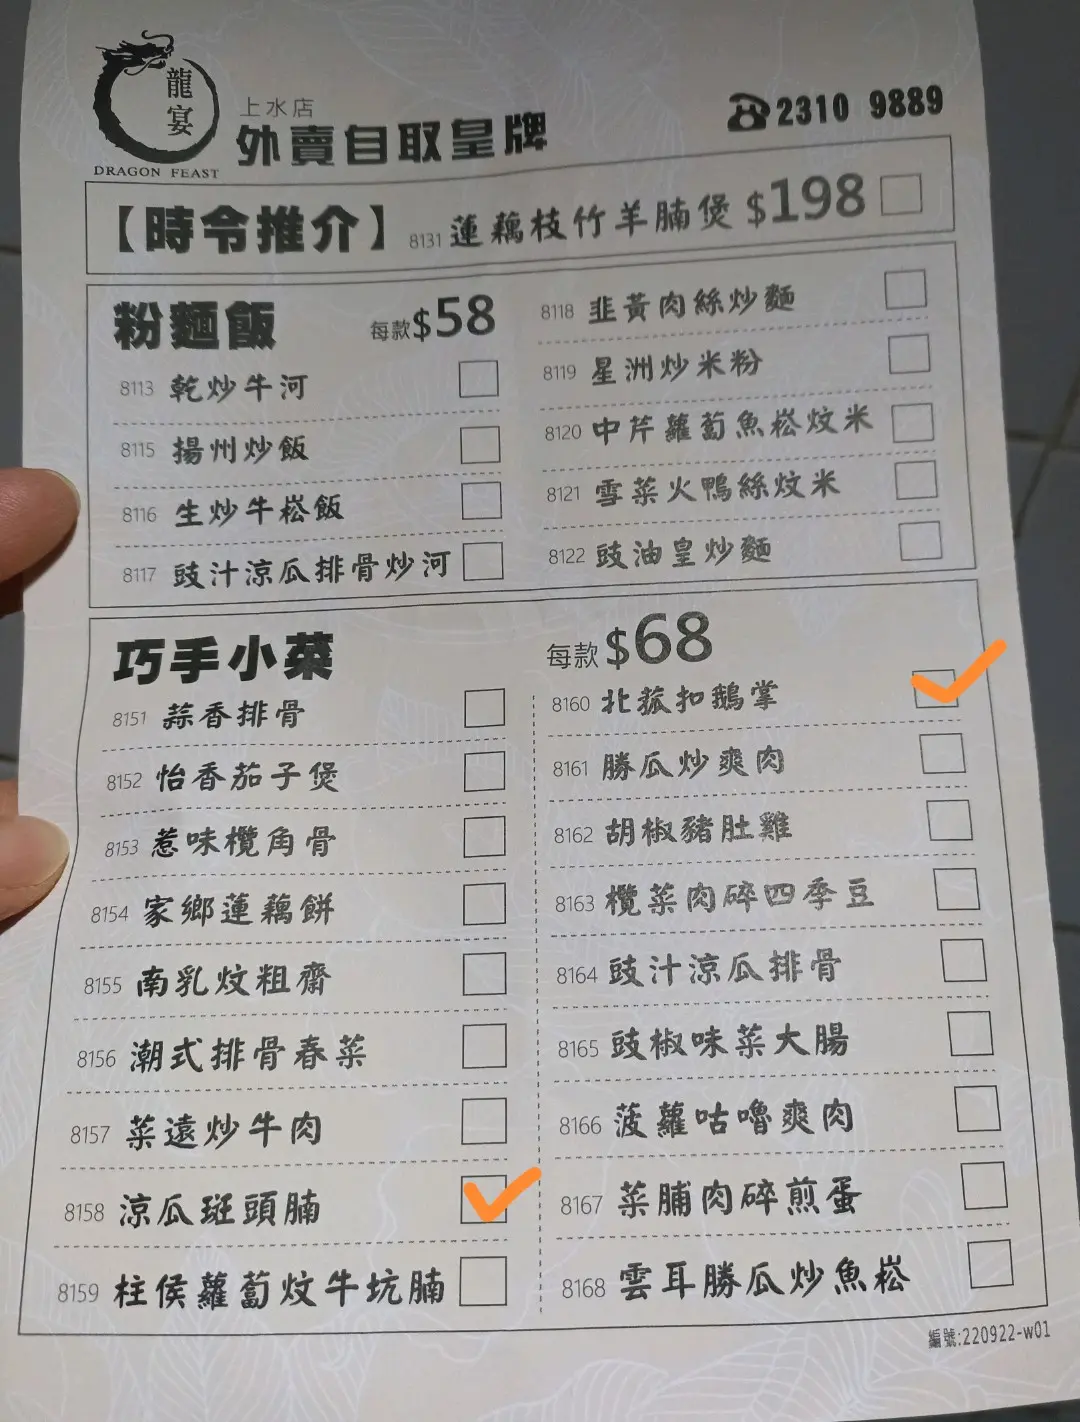 龍宴
DRAGON FEAST
上水店
外賣自取皇牌
☎2310 9889
【時令推介】 8131 蓮藕枝竹羊腩煲 $198
粉麵飯 每款$58
8113 乾炒牛河
8115 揚州炒飯
8116 生炒牛崧飯
8117 豉汁涼瓜排骨炒河
8118 韭黃肉絲炒麵
8119 星洲炒米粉
8120 中芹蘿蔔魚崧炆米
8121 雪菜火鴨絲炆米
8122 豉油皇炒麵
巧手小菜 每款$68
8151 蒜香排骨
8152 怡香茄子煲
8153 惹味欖角骨
8154 家鄉蓮藕餅
8155 南乳炆粗齋
8156 潮式排骨春菜
8157 菜遠炒牛肉
8158 涼瓜斑頭腩
8159 柱侯蘿蔔炆牛坑腩
8160 北菰扣鵝掌
8161 勝瓜炒爽肉
8162 胡椒豬肚雞
8163 欖菜肉碎四季豆
8164 豉汁涼瓜排骨
8165 豉椒味菜大腸
8166 菠蘿咕嚕爽肉
8167 菜脯肉碎煎蛋
8168 雲耳勝瓜炒魚崧
編號:220922-w01